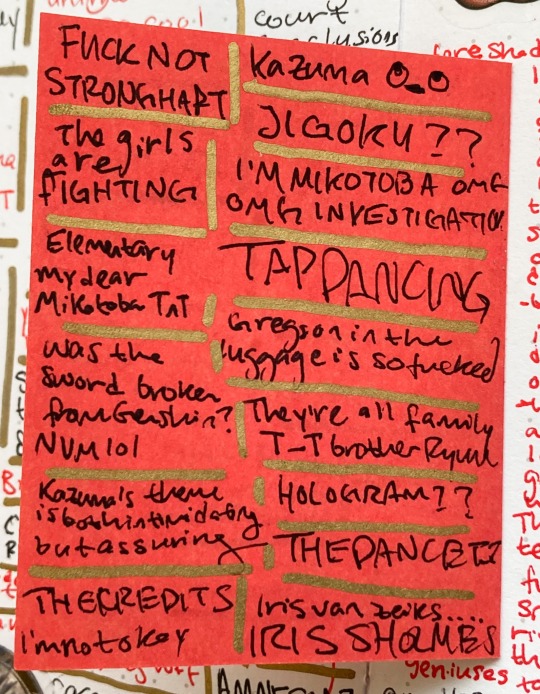 FUCK NOT
STRONGHART
The girls
are
FIGHTING
Elementary
my dear
Mikotoba TnT
was the
sword broken
from Genshin?
NVM lol
Kazuma's theme
is both intimidating
but assuring
THE CREDITS
i'm not okay
Kazuma
JIGOKU??
I'M MIKOTOBA OMG
OMG INVESTIGATION
TAP DANCING
Gregson in the
luggage is so fucked
They're all family
T-T brother Ryuu
HOLOGRAM??
THE DANCE
Iris van zeiks....
IRIS SHOLMES
court
conclusions
geniuses